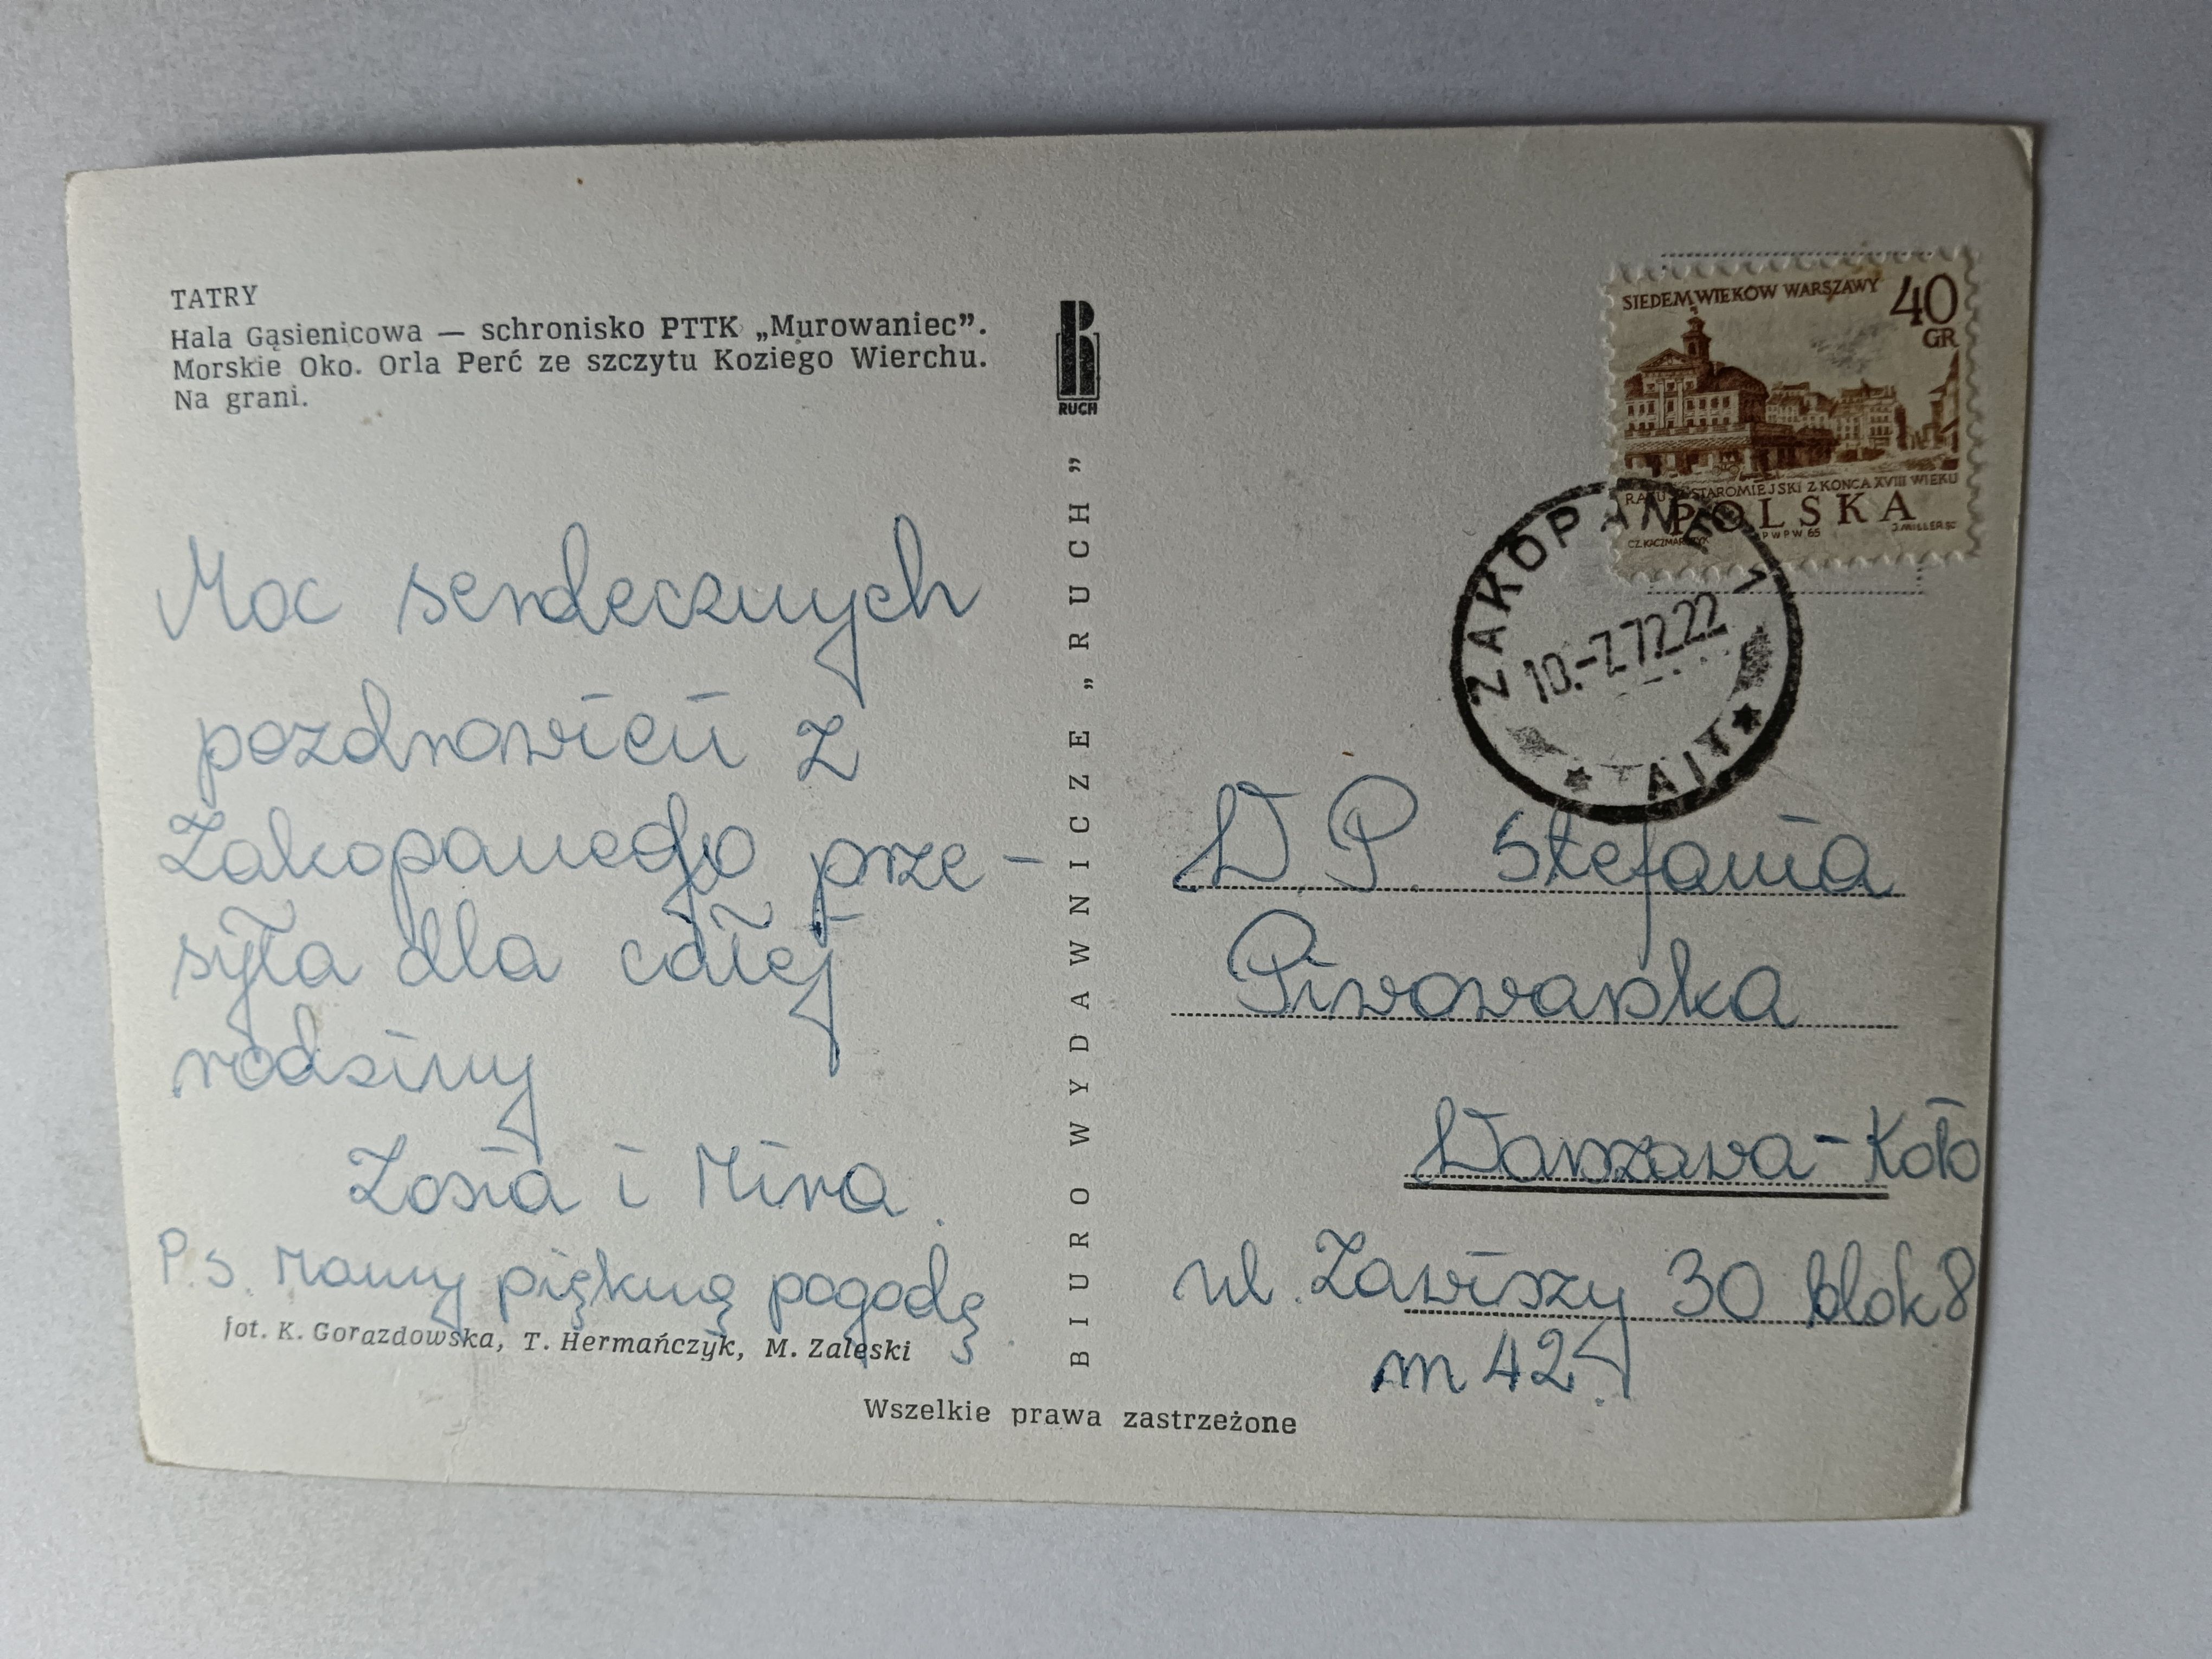 TATRY
Hala Gąsienicowa — schronisko PTTK „Murowaniec”.
Morskie Oko. Orla Perć ze szczytu Koziego Wierchu.
Na grani.
Moc serdecznych
pozdrowień z
Zakopanego prze-
syła dla całej
rodziny
Zosia i Mira.
P.S. Mamy piękną pogodę
fot. K. Gorazdowska, T. Hermańczyk, M. Zaleski
RUCH
BIURO WYDAWNICZE „RUCH”
Wszelkie prawa zastrzeżone
SIEDEM WIEKÓW WARSZAWY
40
GR
RATUSZ STAROMIEJSKI Z KOŃCA XVIII WIEKU
POLSKA
CZ. KACZMARCZYK
PWPW 65
J. MILLER SC
ZAKOPANE 1
10.-7.72.22
W P. Stefania
Piwowarska
Warszawa-Koło
ul. Zawiszy 30 blok 8
m 42